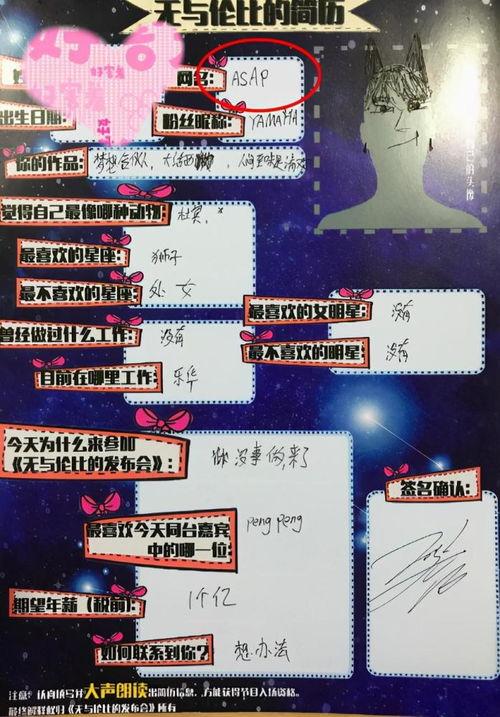 无与伦比的简历
网名: ASAP
出生日期:
粉丝昵称: YAMAHA
你的作品: 梦想合伙人, 大话西游, 人间至味是清欢
觉得自己最像哪种动物: 杜宾.
最喜欢的星座: 狮子
最不喜欢的星座: 处女
最喜欢的女明星: 没有
曾经做过什么工作: 没有
最不喜欢的明星: 没有
目前在哪里工作: 乐华
今天为什么来参加
《无与伦比的发布会》: 没事做,来了
签名确认:
最喜欢今天同台嘉宾
中的哪一位: peng peng
期望年薪 (税前): 1个亿
如何联系到你? 想办法
注意: 认真填写并大声朗读出简历信息, 方能获得节目入场资格。
最终解释权归《无与伦比的发布会》所有